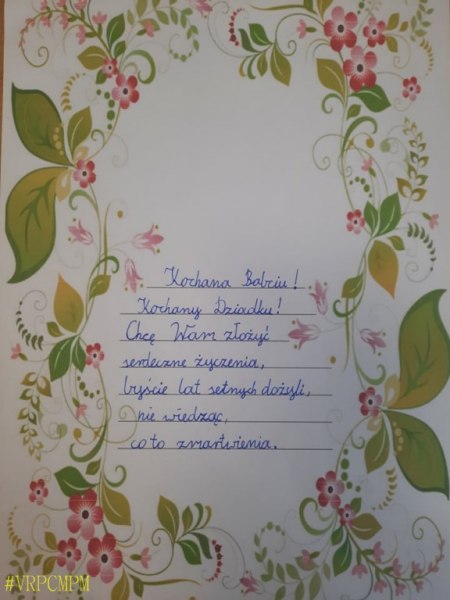 Kochana Babciu!
Kochany Dziadku!
Chcę Wam złożyć
serdeczne życzenia,
byście lat setnych dożyli,
nie wiedząc,
co to zmartwienia.
#VRPCMPM